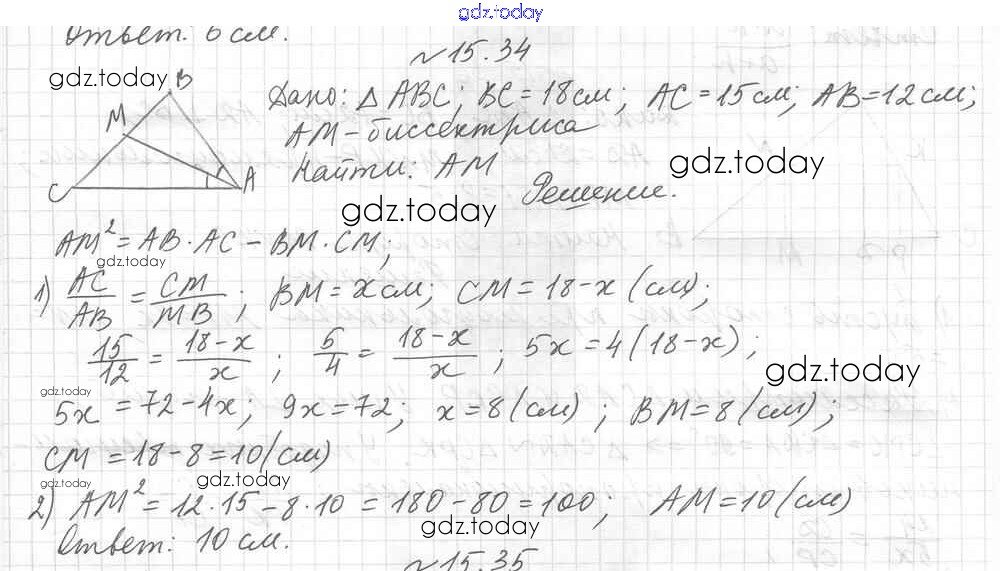 gdz.today
Ответ: 6 см.
№15.34
gdz.today
B
M
C
A
Дано: △ ABC; BC = 18 см; AC = 15 см; AB = 12 см;
AM – биссектриса
Найти: AM
gdz.today
Решение.
gdz.today
AM² = AB · AC – BM · CM;
gdz.today
1) AC/AB = CM/MB; BM = x см; CM = 18 – x (см);
15/12 = 18 – x/x; 5/4 = 18 – x/x; 5x = 4(18 – x);
gdz.today
gdz.today
5x = 72 – 4x; 9x = 72; x = 8 (см); BM = 8 (см);
CM = 18 – 8 = 10 (см)
gdz.today
gdz.today
2) AM² = 12 · 15 – 8 · 10 = 180 – 80 = 100; AM = 10 (см)
gdz.today
Ответ: 10 см.
№15.35